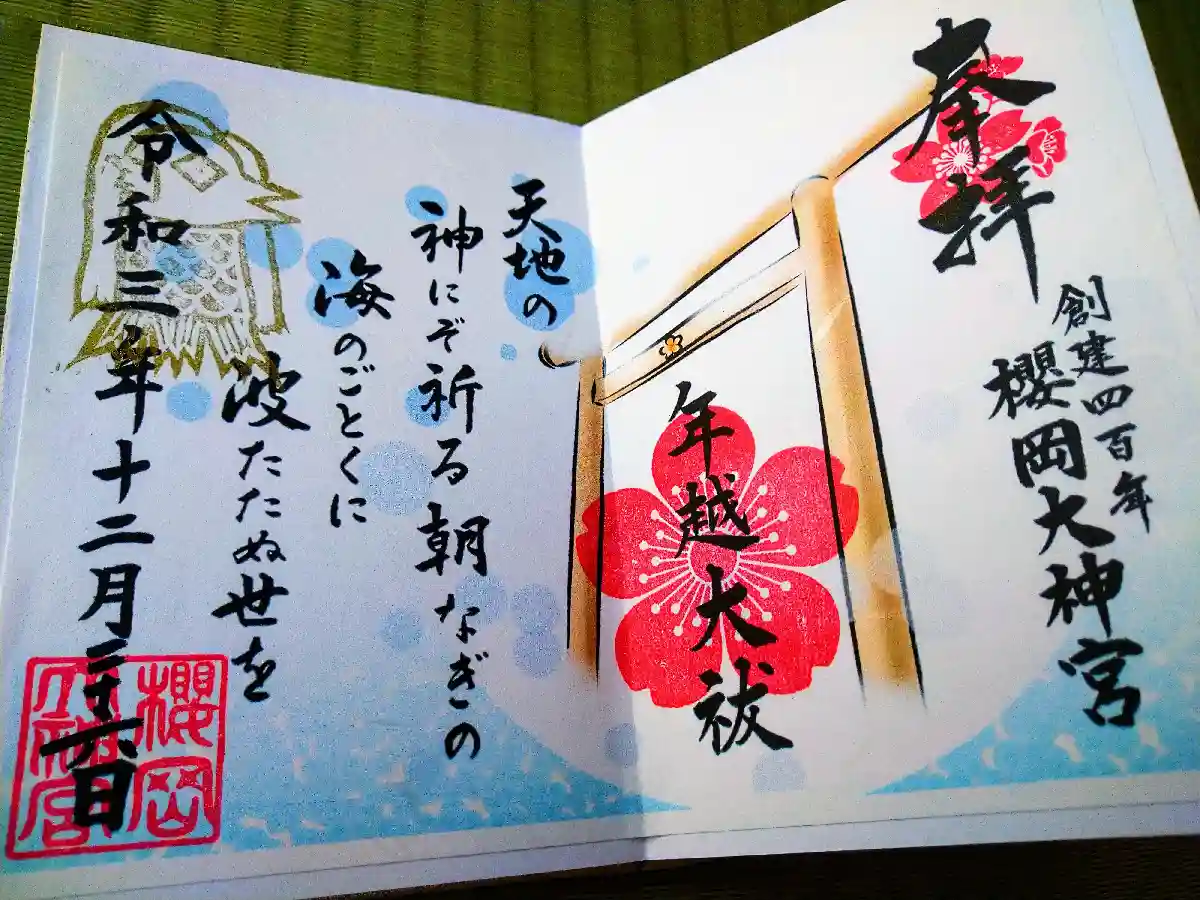 奉拝
創建四百年
櫻岡大神宮
年越大祓
天地の
神にぞ祈る朝なぎの
海のごとくに
波たたぬ世を
令和三年十二月二十六日
櫻岡
大神宮